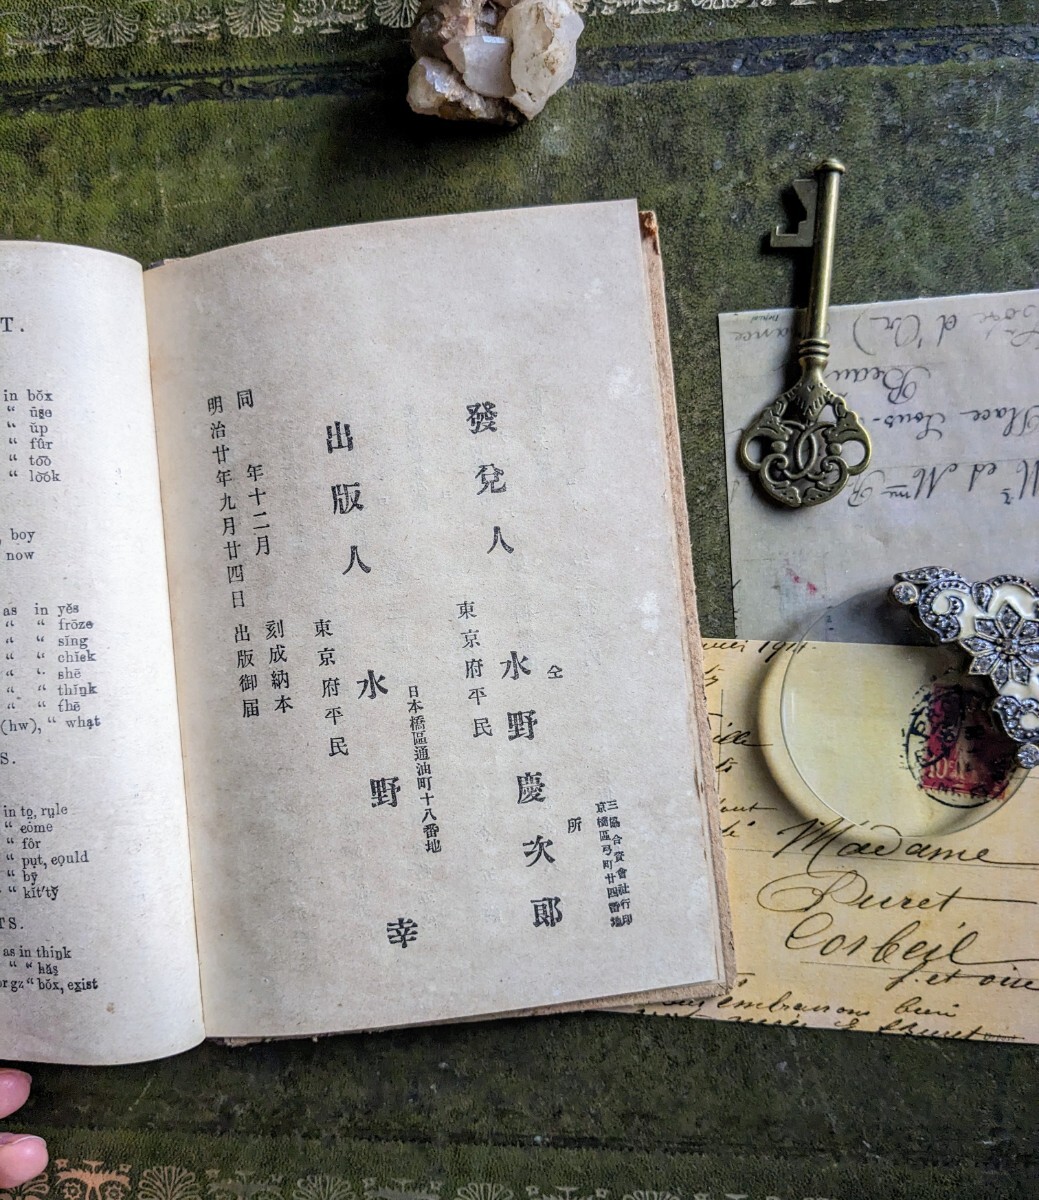 T.
in bŏx
“ ūşe
“ ŭp
“ fûr
“ to͞o
“ lo͝ok
, boy
now
as in yĕs
“ “ frōze
“ “ sĭng
“ “ chĭck
“ “ shē
“ “ thĭnk
“ “ thē
(hw), “ what
S.
in to, rule
“ come
“ fôr
“ put, could
“ bȳ
“ kĭt′tў
TS.
as in think
“ “ hăş
or gz “ bŏx, exist
明治廿年九月廿四日 出版御届
同 年十二月 刻成納本
出版人
東京府平民
水野 幸
日本橋區通油町十八番地
發兌人
東京府平民
水野慶次郎
仝 所
京橋區弓町廿四番地
三協合資會社行印
Côte d'Or)
Beau
Place Lous-
M et Mme R
1914.
Madame
Duret
Corbeil
S. et oise
embrassons bien